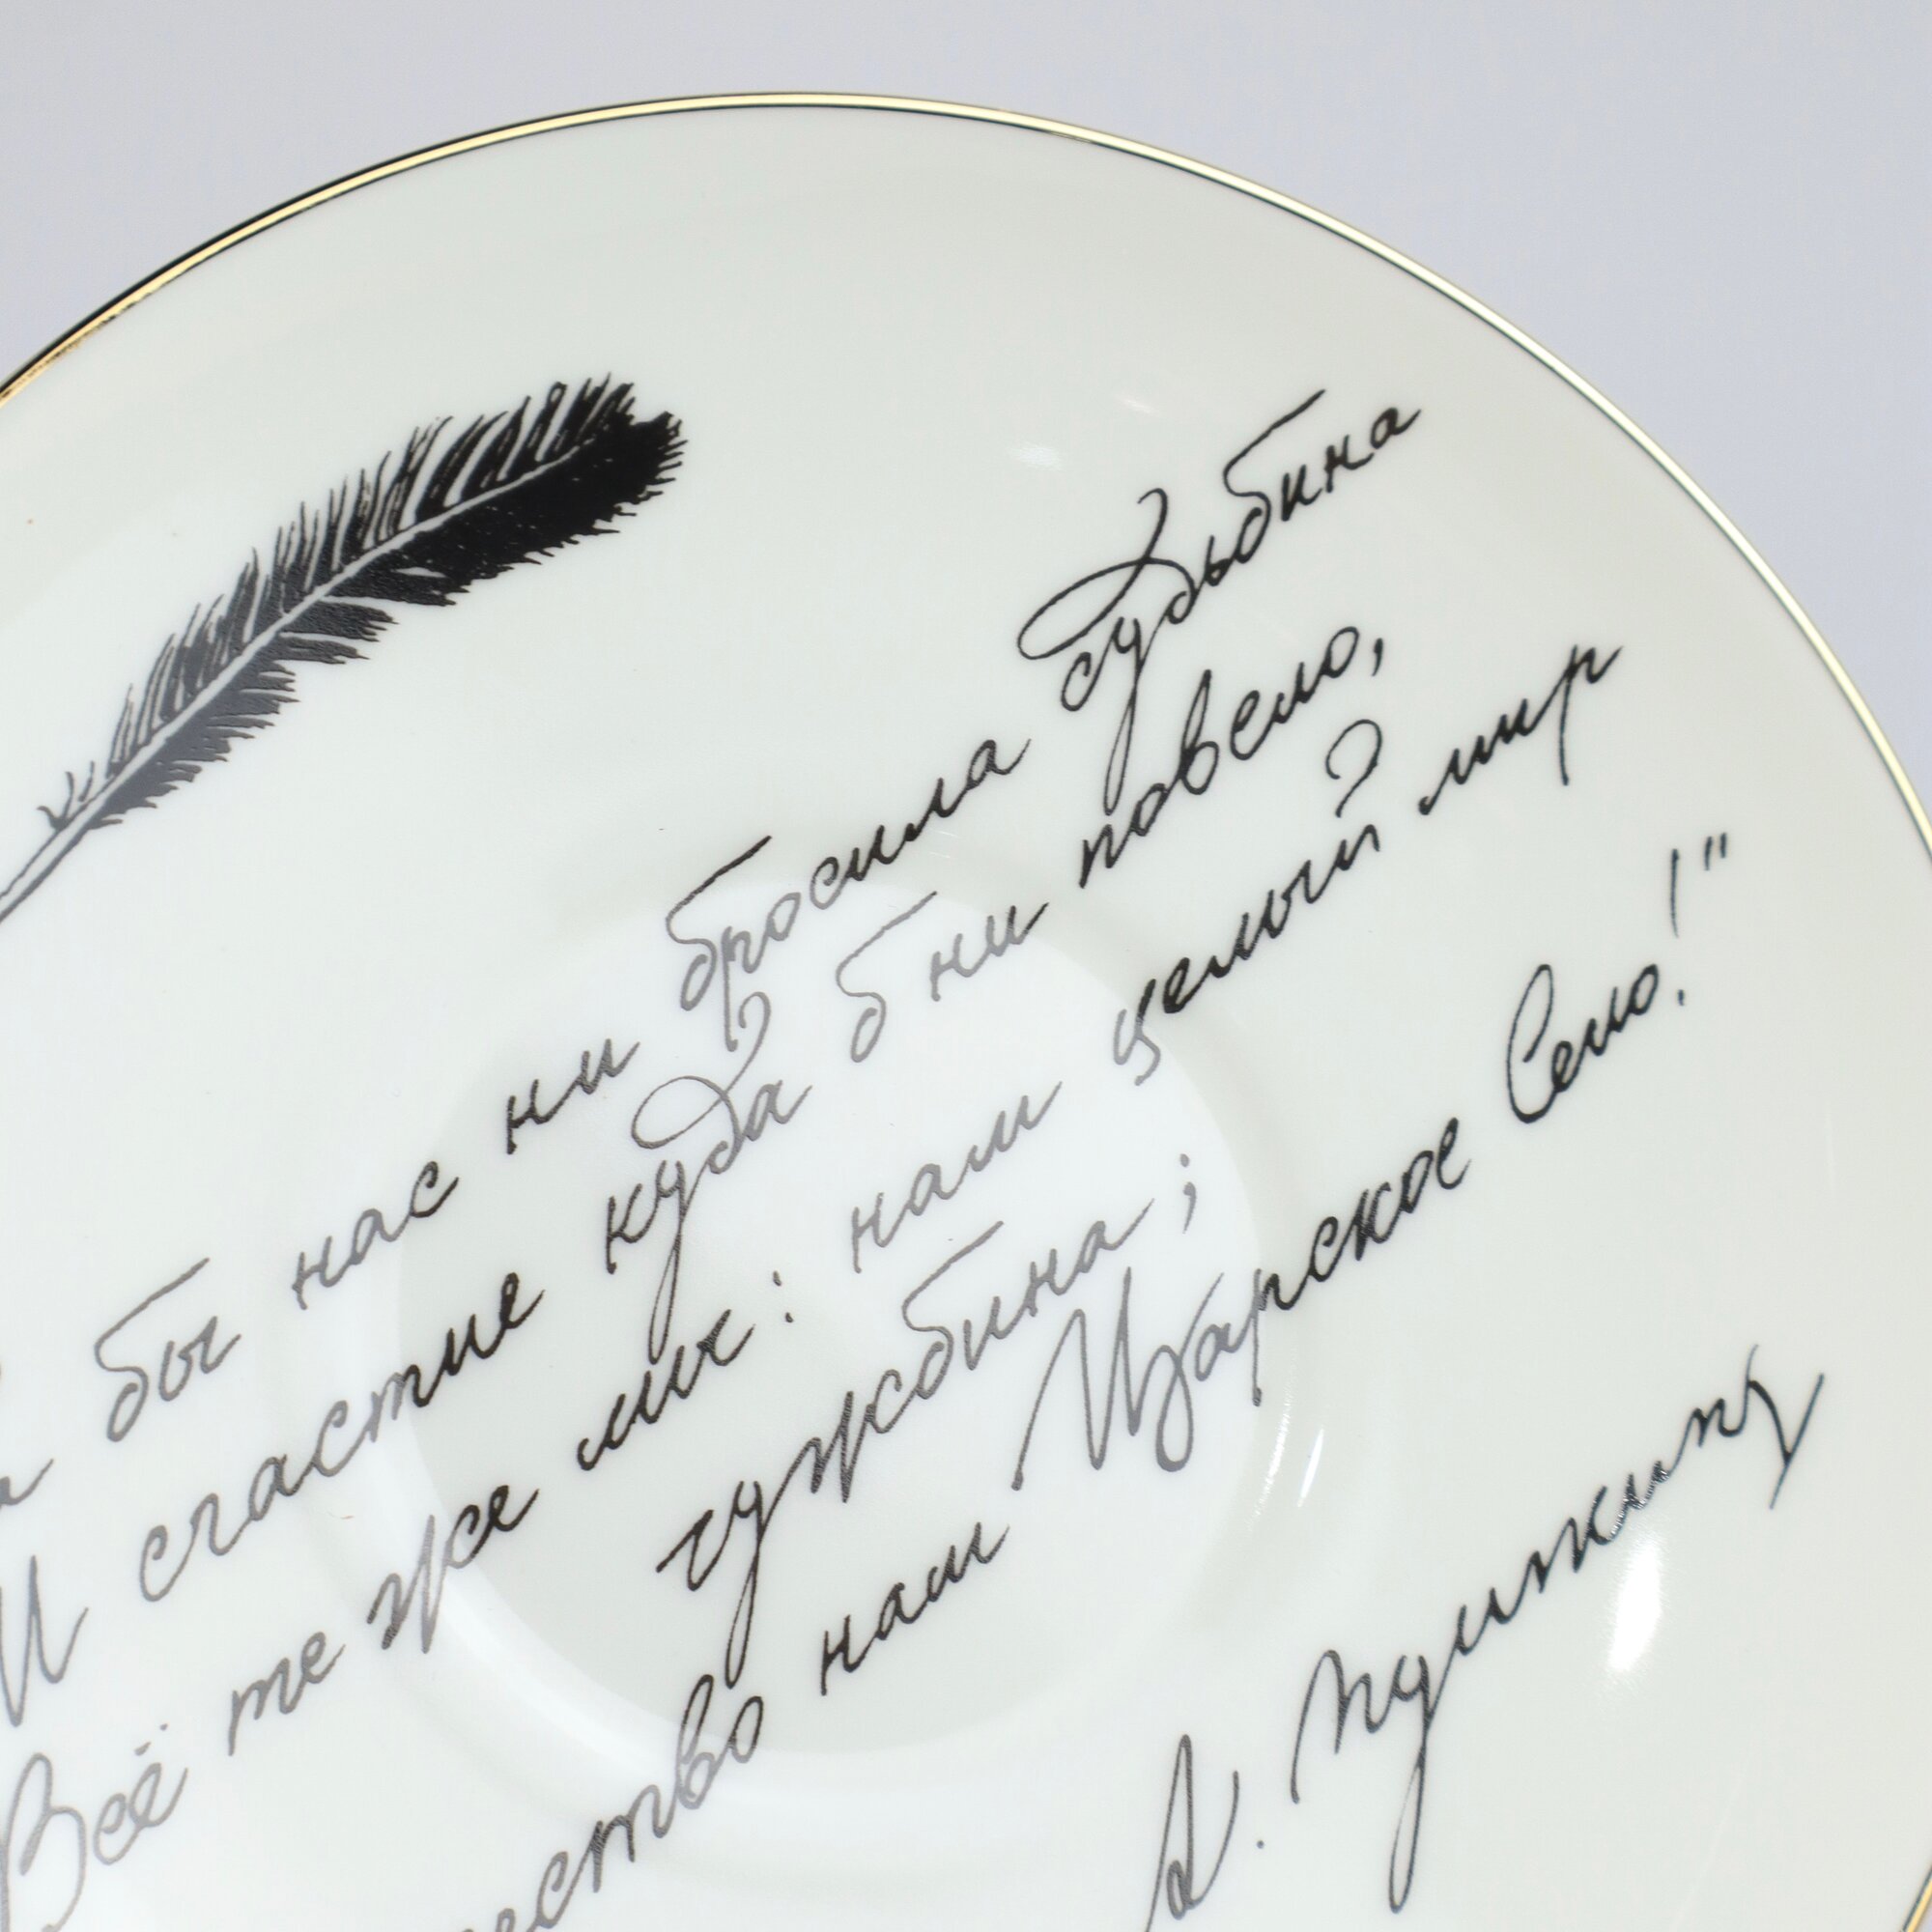 бы нас ни бросила судьбина
И счастие куда б ни повело,
Всё те же мы: нам целый мир
чужбина;
ество нам Царское Село!"
А. Пушкинъ